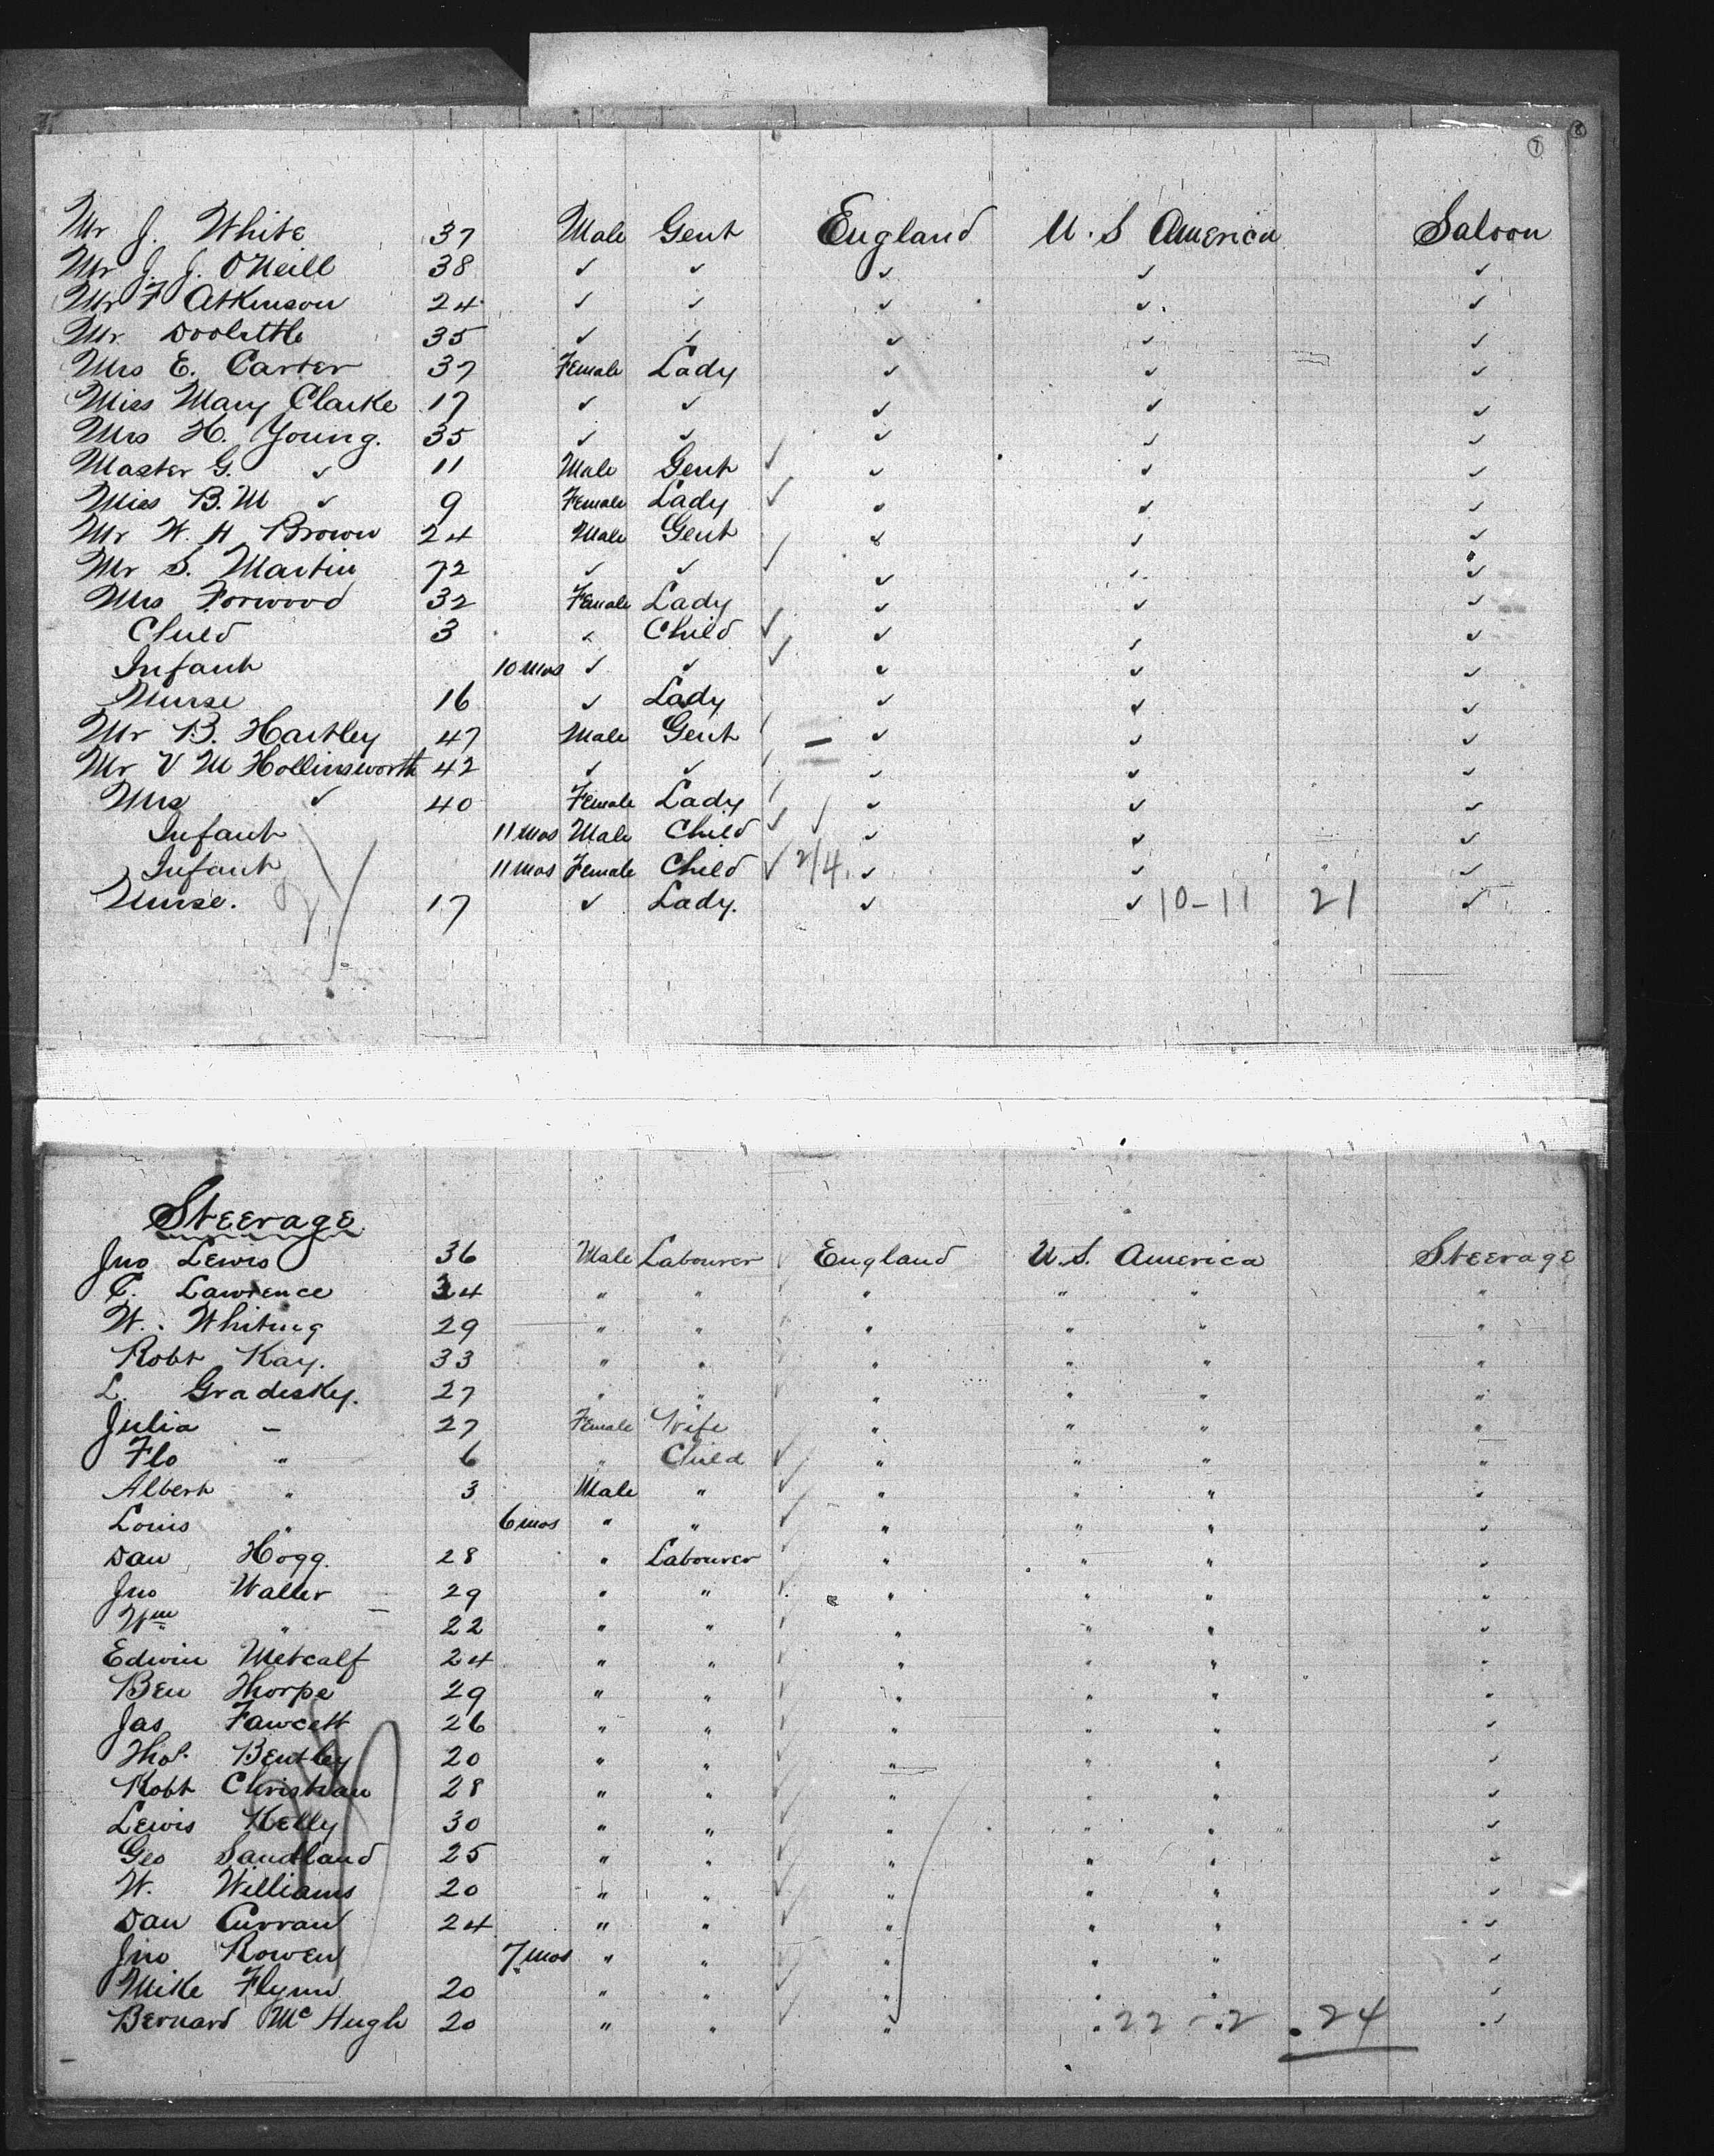 7 8
Mr J. White 37 Male Gent England U.S America Saloon
Mr J. J. O'Neill 38 ✓ ✓ ✓ ✓ ✓
Mr F Atkinson 24 ✓ ✓ ✓ ✓ ✓
Mr Doolittle 35 ✓ ✓ ✓ ✓ ✓
Mrs E. Carter 37 Female Lady ✓ ✓ ✓
Miss Mary Clarke 17 ✓ ✓ ✓ ✓ ✓
Mrs H. Young. 35 ✓ ✓ ✓ ✓ ✓
Master G. ✓ 11 Male Gent ✓ ✓ ✓ ✓
Miss B.M ✓ 9 Female Lady ✓ ✓ ✓ ✓
Mr W. H Brown 24 Male Gent ✓ ✓ ✓
Mr S. Martin 72 ✓ ✓ ✓ ✓ ✓
Mrs Forwood 32 Female Lady ✓ ✓ ✓
Child 3 ✓ Child ✓ ✓ ✓ ✓
Infant 10 mos ✓ ✓ ✓ ✓ ✓ ✓
Nurse 16 ✓ Lady ✓ ✓ ✓
Mr B. Hartley 47 Male Gent ✓ ✓ ✓
Mr V M Hollinsworth 42 ✓ ✓ ✓ ✓ ✓
Mrs ✓ 40 Female Lady ✓ ✓ ✓
Infant 11 mos Male Child ✓ ✓ ✓ ✓
Infant 11 mos Female Child ✓ 2/4. ✓ ✓ ✓
Nurse. 17 ✓ Lady. ✓ ✓ 10-11 21 ✓
Steerage
Jno Lewis 36 Male Labourer England U.S. America Steerage
C. Lawrence 34 " " " " " "
W. Whiting 29 " " " " " "
Robt Kay. 33 " " " " " "
L. Gradisky. 27 " " " " " "
Julia - 27 Female Wife " " " "
Flo " 6 " Child ✓ " " " "
Albert " 3 Male " ✓ " " " "
Louis " 6 mos " " ✓ " " " ✓
Dan Hogg. 28 " Labourer " " " ✓
Jno Waller 29 " " " " " ✓
Wm " 22 " " " " " ✓
Edwin Metcalf 24 " " " " " "
Ben Thorpe 29 " " " " " "
Jas Fawcett 26 " " " " " ✓
Thos. Bentley 20 " " " " " ✓
Robt Christian 28 " " " " " ✓
Lewis Kelly 30 " " " " " ✓
Geo Sandland 25 " " " " " ✓
W. Williams 20 " " " " " ✓
Dan Curran 24 " " " " " ✓
Jno Rowen 7 mos " " " " " ✓
Mike Flynn 20 " " " " " ✓
Bernard McHugh 20 " " " " 22-2 24 ✓